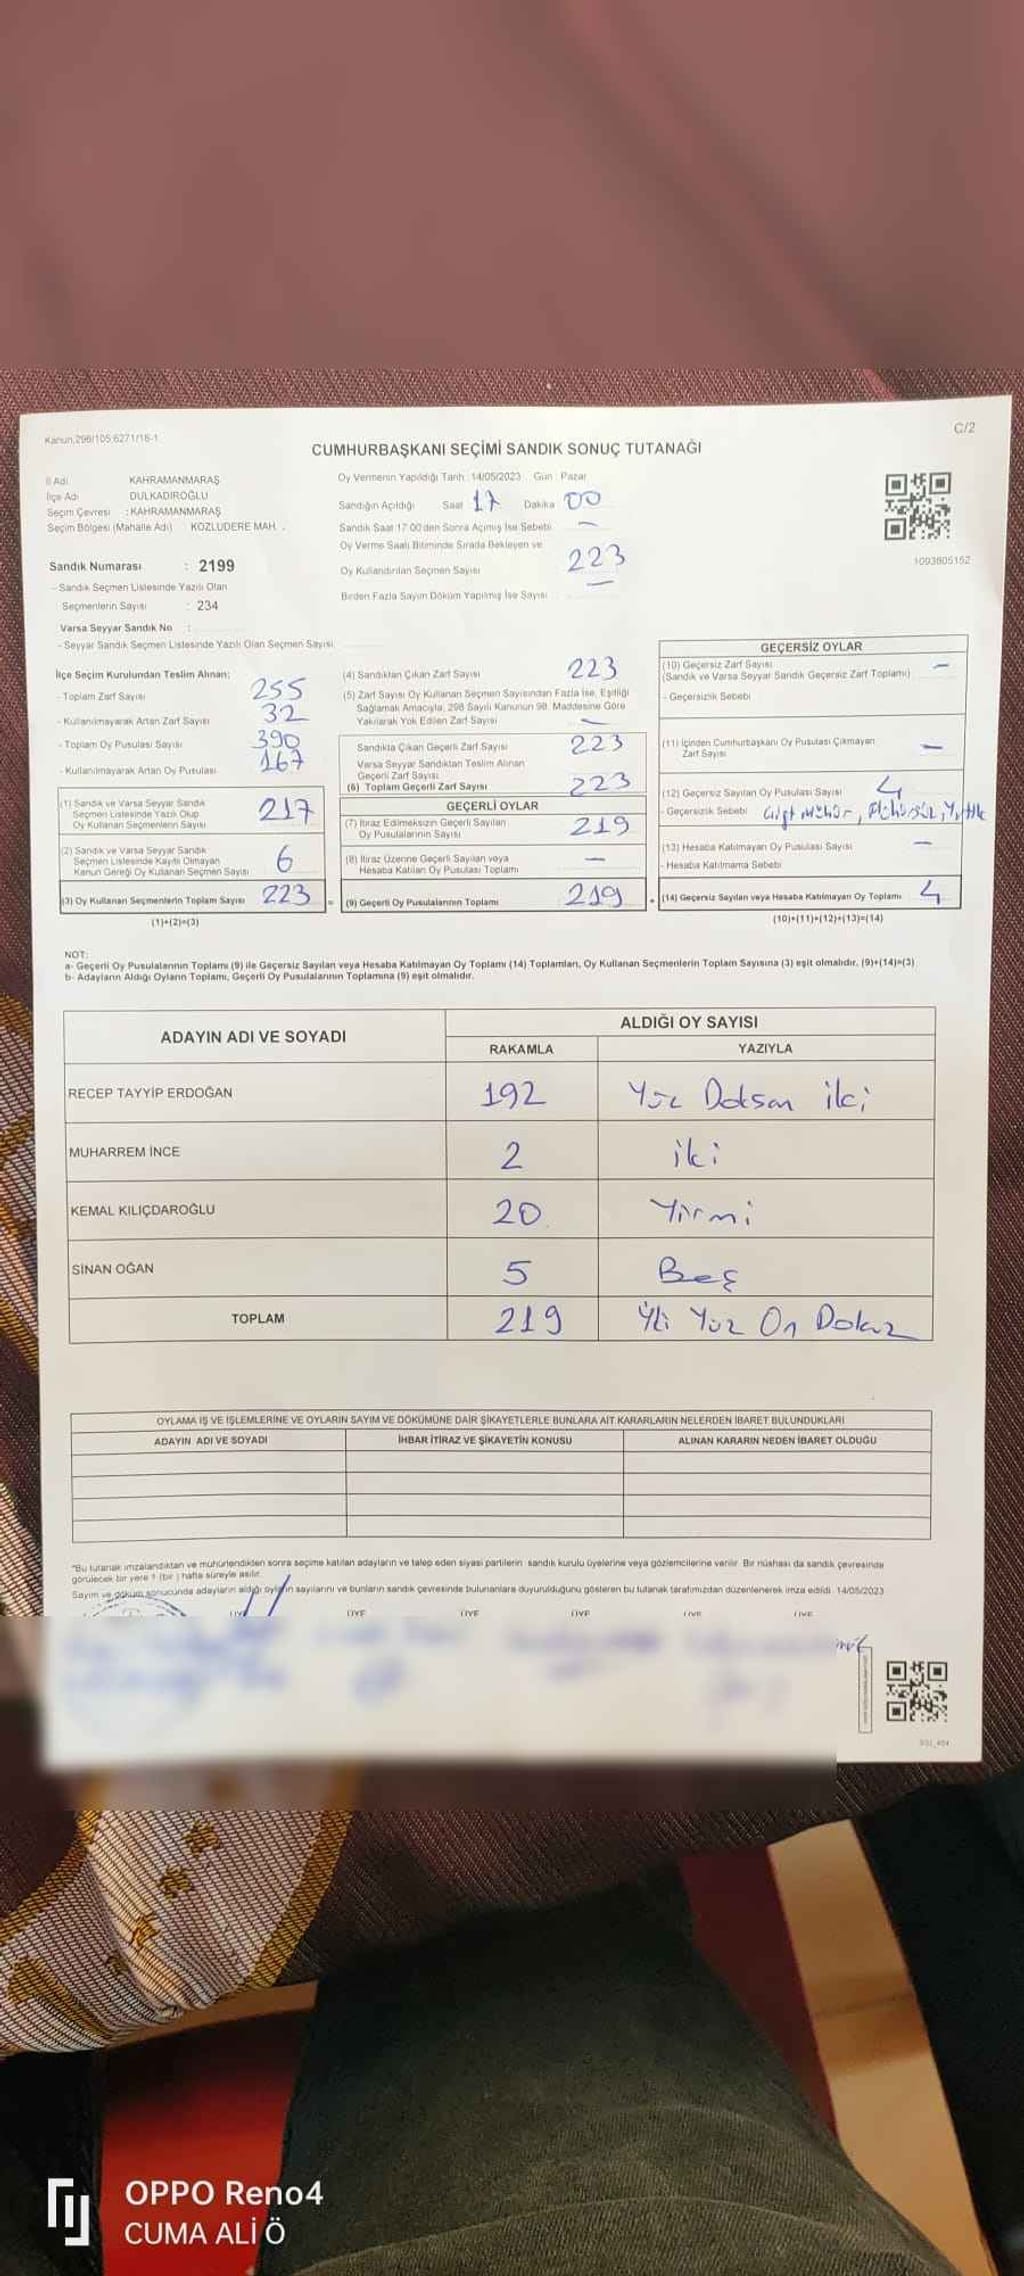 Kanun,298/105;6271/16-1
C/2
CUMHURBAŞKANI SEÇİMİ SANDIK SONUÇ TUTANAĞI
İl Adı KAHRAMANMARAŞ
İlçe Adı DULKADİROĞLU
Seçim Çevresi : KAHRAMANMARAŞ
Seçim Bölgesi (Mahalle Adı) : KOZLUDERE MAH.
Sandık Numarası : 2199
- Sandık Seçmen Listesinde Yazılı Olan
Seçmenlerin Sayısı : 234
Varsa Seyyar Sandık No :
- Seyyar Sandık Seçmen Listesinde Yazılı Olan Seçmen Sayısı
Oy Vermenin Yapıldığı Tarih : 14/05/2023 Gün : Pazar
Sandığın Açıldığı Saat 17 Dakika 00
Sandık Saat 17:00'den Sonra Açılmış İse Sebebi —
Oy Verme Saati Bitiminde Sırada Bekleyen ve
Oy Kullandırılan Seçmen Sayısı 223
Birden Fazla Sayım Döküm Yapılmış İse Sayısı —
1093605152
İlçe Seçim Kurulundan Teslim Alınan:
- Toplam Zarf Sayısı 255
- Kullanılmayarak Artan Zarf Sayısı 32
- Toplam Oy Pusulası Sayısı 390
- Kullanılmayarak Artan Oy Pusulası 167
(1) Sandık ve Varsa Seyyar Sandık
Seçmen Listesinde Yazılı Olup
Oy Kullanan Seçmenlerin Sayısı 217
(2) Sandık ve Varsa Seyyar Sandık
Seçmen Listesinde Kayıtlı Olmayan
Kanun Gereği Oy Kullanan Seçmen Sayısı 6
(3) Oy Kullanan Seçmenlerin Toplam Sayısı 223
(1)+(2)=(3)
(4) Sandıktan Çıkan Zarf Sayısı 223
(5) Zarf Sayısı Oy Kullanan Seçmen Sayısından Fazla İse, Eşitliği
Sağlamak Amacıyla, 298 Sayılı Kanunun 98. Maddesine Göre
Yakılarak Yok Edilen Zarf Sayısı —
Sandıkta Çıkan Geçerli Zarf Sayısı 223
Varsa Seyyar Sandıktan Teslim Alınan
Geçerli Zarf Sayısı
(6) Toplam Geçerli Zarf Sayısı 223
GEÇERLİ OYLAR
(7) İtiraz Edilmeksizin Geçerli Sayılan
Oy Pusulalarının Sayısı 219
(8) İtiraz Üzerine Geçerli Sayılan veya
Hesaba Katılan Oy Pusulası Toplamı —
= (9) Geçerli Oy Pusulalarının Toplamı 219
GEÇERSİZ OYLAR
(10) Geçersiz Zarf Sayısı —
(Sandık ve Varsa Seyyar Sandık Geçersiz Zarf Toplamı)
- Geçersizlik Sebebi
(11) İçinden Cumhurbaşkanı Oy Pusulası Çıkmayan
Zarf Sayısı —
(12) Geçersiz Sayılan Oy Pusulası Sayısı 4
- Geçersizlik Sebebi
(13) Hesaba Katılmayan Oy Pusulası Sayısı —
- Hesaba Katılmama Sebebi
+ (14) Geçersiz Sayılan veya Hesaba Katılmayan Oy Toplamı 4
(10)+(11)+(12)+(13)=(14)
NOT:
a- Geçerli Oy Pusulalarının Toplamı (9) ile Geçersiz Sayılan veya Hesaba Katılmayan Oy Toplamı (14) Toplamları, Oy Kullanan Seçmenlerin Toplam Sayısına (3) eşit olmalıdır. (9)+(14)=(3)
b- Adayların Aldığı Oyların Toplamı, Geçerli Oy Pusulalarının Toplamına (9) eşit olmalıdır.
ADAYIN ADI VE SOYADI ALDIĞI OY SAYISI
RAKAMLA YAZIYLA
RECEP TAYYİP ERDOĞAN 192 Yüz Doksan iki
MUHARREM İNCE 2 iki
KEMAL KILIÇDAROĞLU 20 Yirmi
SİNAN OĞAN 5 Beş
TOPLAM 219 İki Yüz On Dokuz
OYLAMA İŞ VE İŞLEMLERİNE VE OYLARIN SAYIM VE DÖKÜMÜNE DAİR ŞİKAYETLERLE BUNLARA AİT KARARLARIN NELERDEN İBARET BULUNDUKLARI
ADAYIN ADI VE SOYADI İHBAR İTİRAZ VE ŞİKAYETİN KONUSU ALINAN KARARIN NEDEN İBARET OLDUĞU
"Bu tutanak imzalandıktan ve mühürlendikten sonra seçime katılan adayların ve talep eden siyasi partilerin sandık kurulu üyelerine veya gözlemcilerine verilir. Bir nüshası da sandık çevresinde
görülecek bir yere 1 (bir ) hafta süreyle asılır.
Sayım ve döküm sonucunda adayların aldığı oyların sayılarını ve bunların sandık çevresinde bulunanlara duyurulduğunu gösteren bu tutanak tarafımızdan düzenlenerek imza edildi. 14/05/2023
ÜYE ÜYE ÜYE ÜYE ÜYE
OPPO Reno4
CUMA ALİ Ö